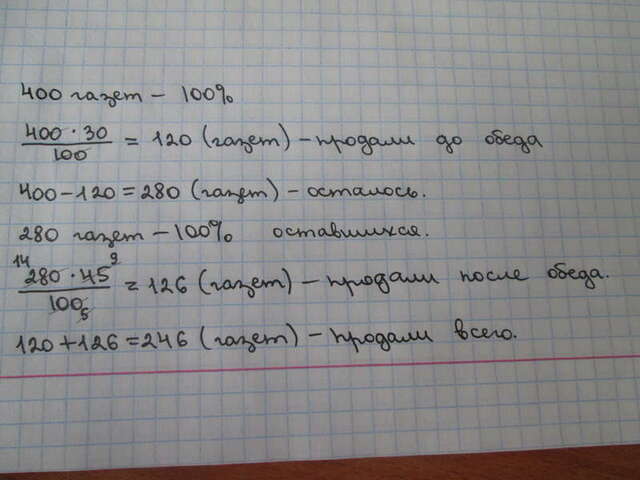 400 газет – 100%
400 · 30 / 100 = 120 (газет) – продали до обеда
400 – 120 = 280 (газет) – осталось.
280 газет – 100% оставшихся.
14 280 · 45 9 / 100 5 = 126 (газет) – продали после обеда.
120 + 126 = 246 (газет) – продали всего.